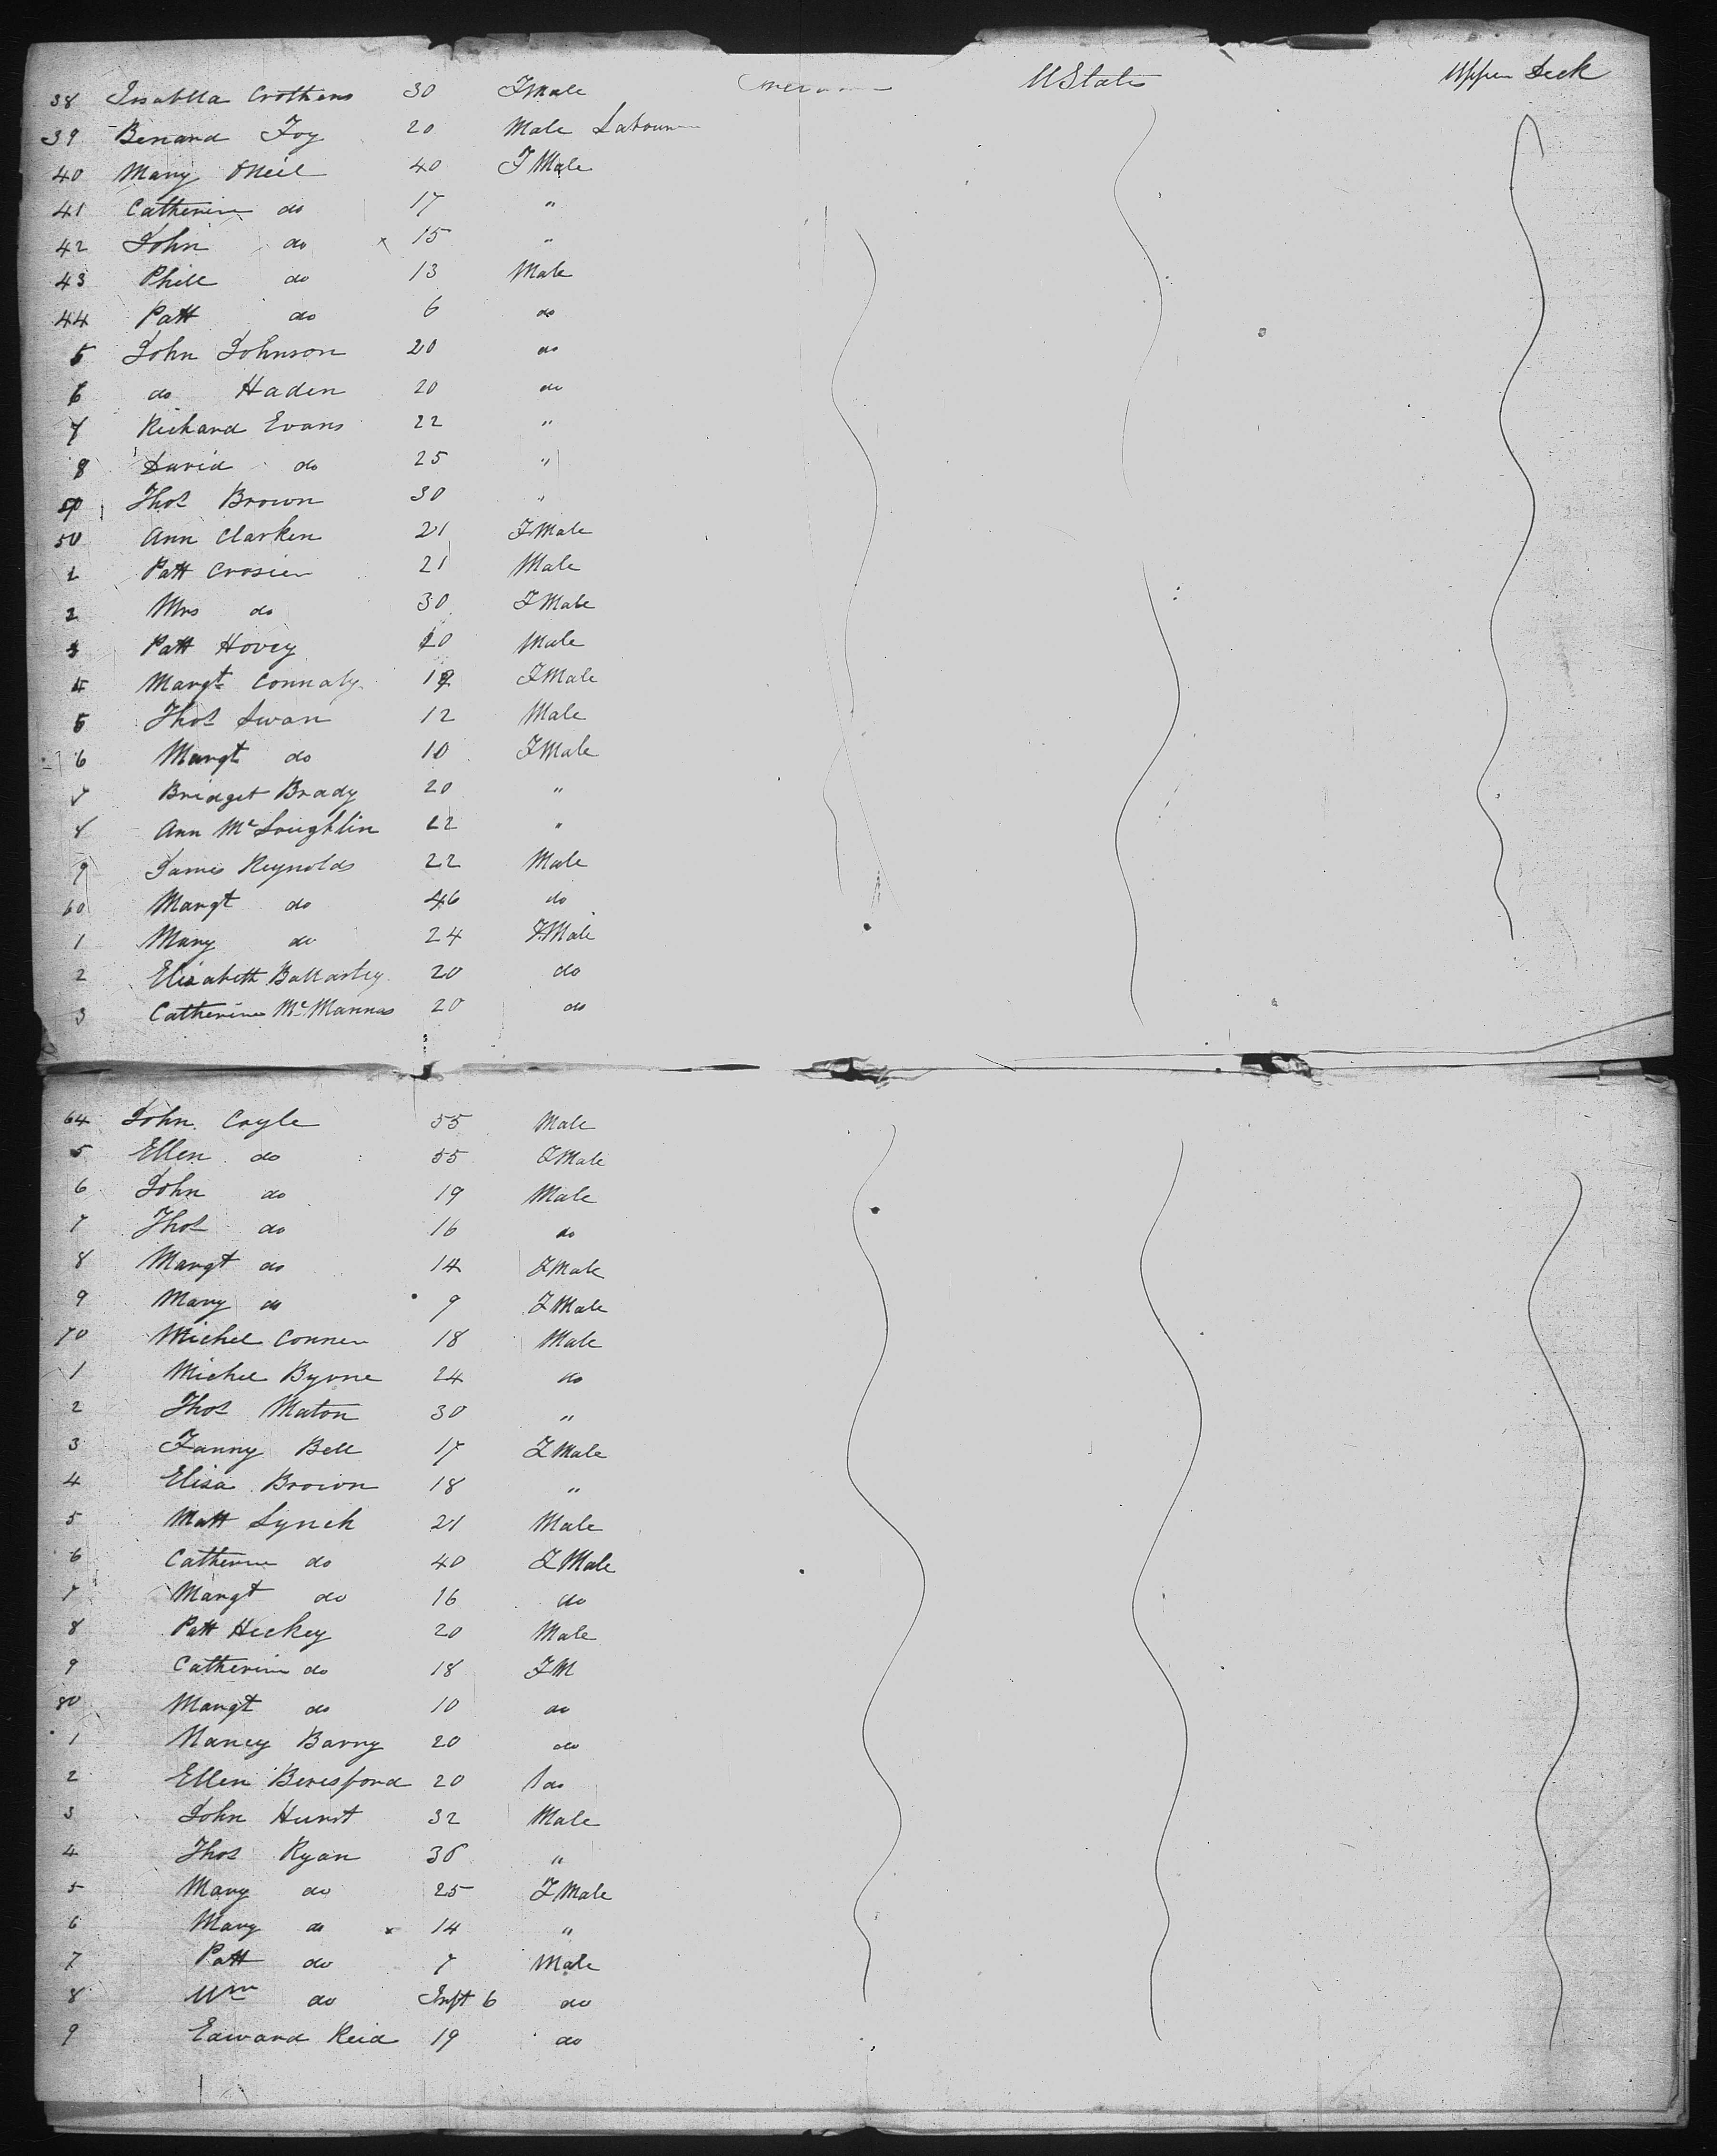 38 Isabella Crothers 30 FMale UStates Upper Deck
39 Benard Foy 20 Male Labourer
40 Mary ONeil 40 FMale
41 Catherine do 17 "
42 John do x 15 "
43 Phill do 13 Male
44 Patt do 6 do
5 John Johnson 20 do
6 do Haden 20 do
7 Richard Evans 22 "
8 David do 25 "
9 Thos Brown 30 "
50 Ann Clarken 21 FMale
1 Patt Crosier 21 Male
2 Mrs do 30 FMale
3 Patt Hovey 20 Male
4 Margt Connaly FMale
5 Thos Swan 12 Male
6 Margt do 10 FMale
7 Bridget Brady 20 "
8 Ann McLoughlin 22 "
9 James Reynolds 22 Male
60 Margt do 46 do
1 Mary do 24 FMale
2 Elizabeth 20 do
3 Catherine McMannus 20 do
64 John Coyle 55 Male
5 Ellen do 55 FMale
6 John do 19 Male
7 Thos do 16 do
8 Margt do 14 FMale
9 Mary do 9 FMale
70 Michel Conner 18 Male
1 Michel Byrne 24 do
2 Thos Maton 30 "
3 Fanny Bell 17 FMale
4 Elisa Brown 18 "
5 Matt Lynch 21 Male
6 Catherine do 40 FMale
7 Margt do 16 do
8 Patt Hickey 20 Male
9 Catherine do 18 FM
80 Margt do 10 do
1 Nancy Barry 20 do
2 Ellen Beresford 20 do
3 John Hurst 32 Male
4 Thos Ryan 36 "
5 Mary do 25 FMale
6 Mary do x 14 "
7 Patt do 7 Male
8 Wm do Inft 6 do
9 Edward Reid 19 do